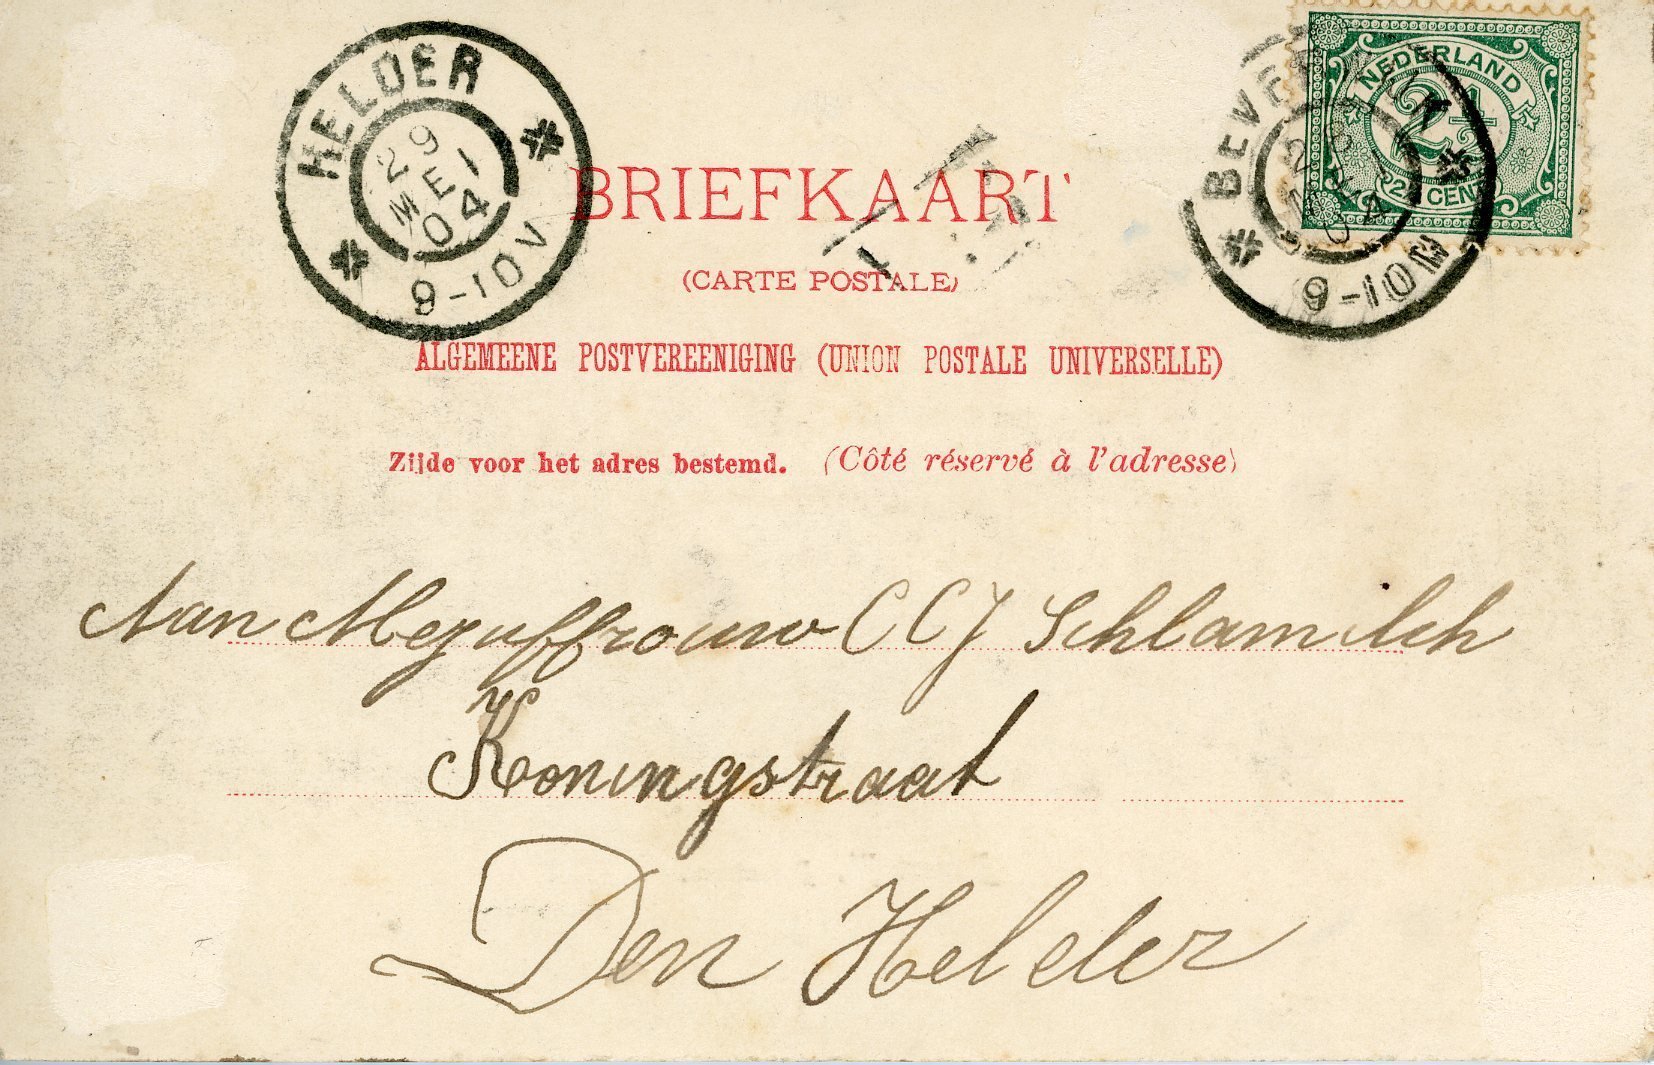 HELDER
29
MEI
04
9-10V
NEDERLAND
2½
2½ CENT
9-10
BRIEFKAART
(CARTE POSTALE)
ALGEMEENE POSTVEREENIGING (UNION POSTALE UNIVERSELLE)
Zijde voor het adres bestemd. (Côté réservé à l'adresse)
Aan Mejuffrouw C C J Schlamilch
Koningstraat
Den Helder